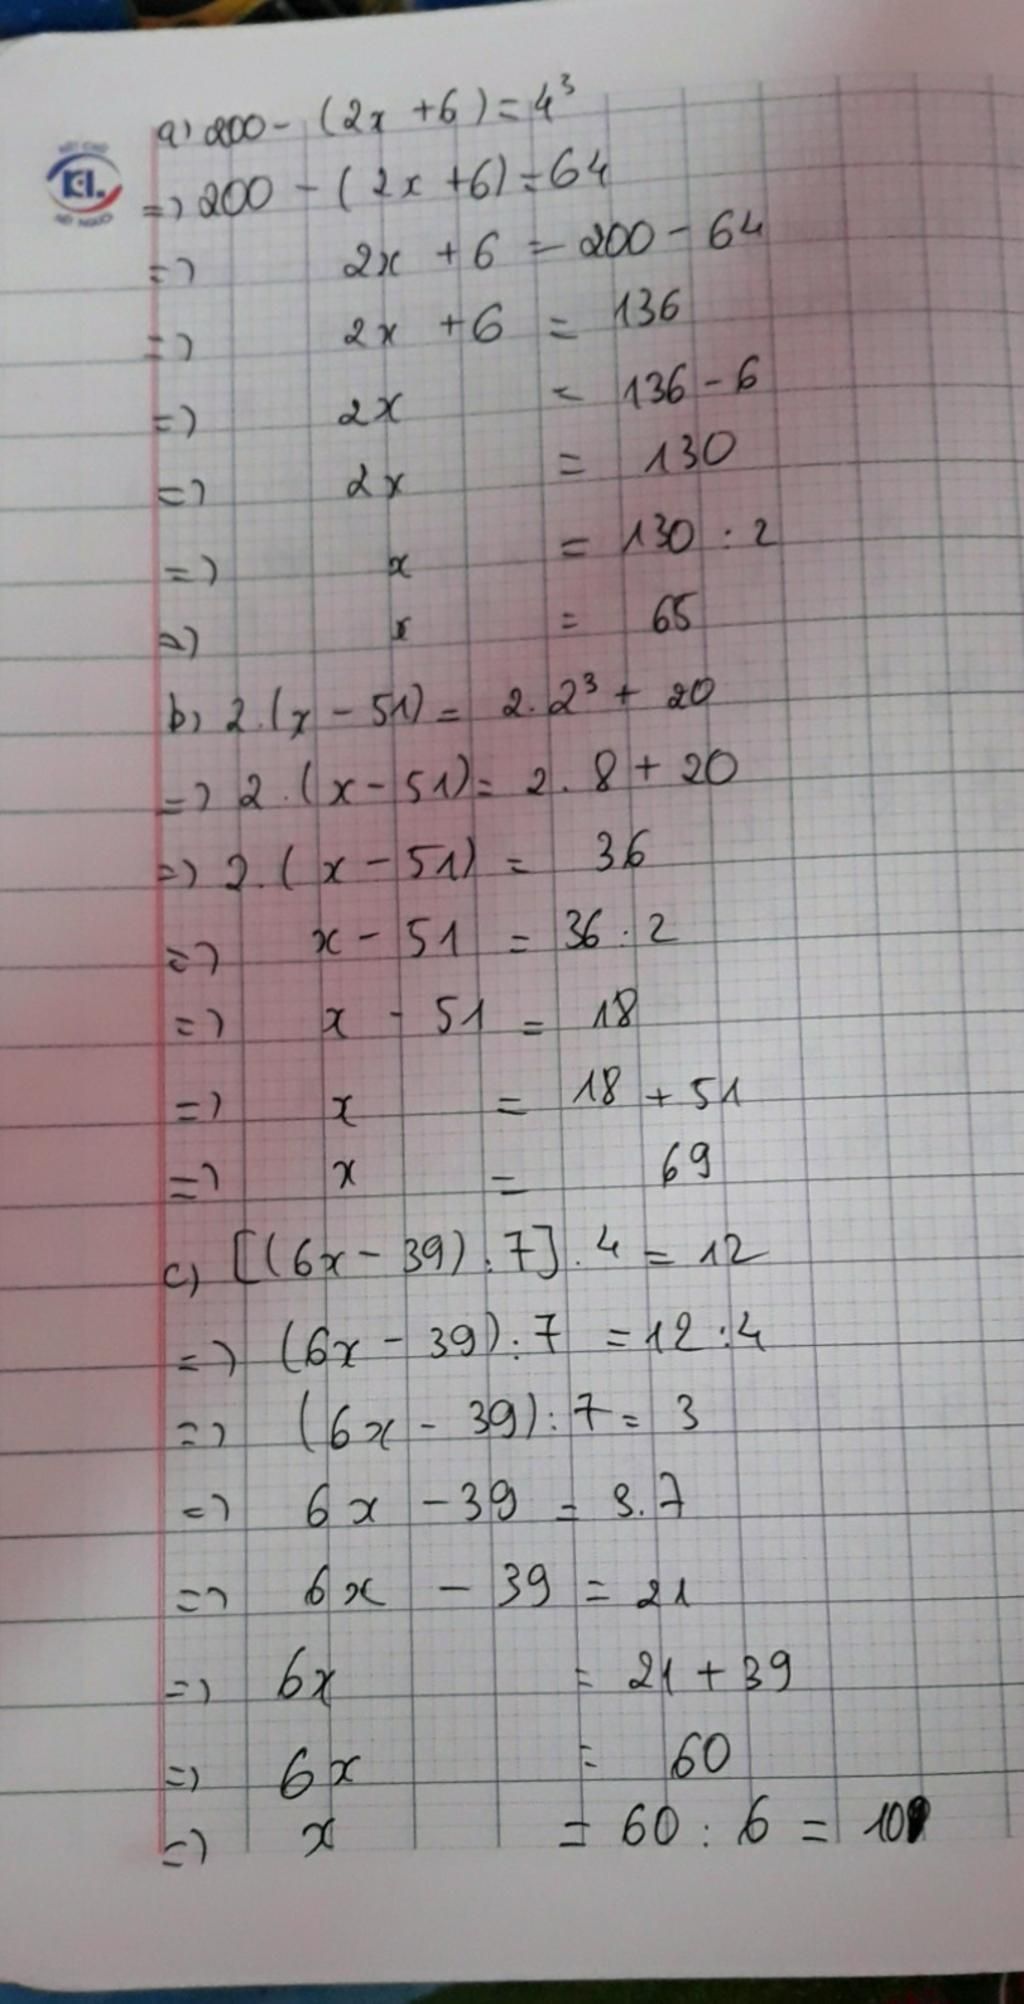 a) 200 - (2x + 6) = 4³
=> 200 - (2x + 6) = 64
=> 2x + 6 = 200 - 64
=> 2x + 6 = 136
=> 2x = 136 - 6
=> 2x = 130
=> x = 130 : 2
=> x = 65
b) 2.(x - 51) = 2.2³ + 20
=> 2.(x - 51) = 2.8 + 20
=> 2.(x - 51) = 36
=> x - 51 = 36 : 2
=> x - 51 = 18
=> x = 18 + 51
=> x = 69
c) [(6x - 39) : 7] . 4 = 12
=> (6x - 39) : 7 = 12 : 4
=> (6x - 39) : 7 = 3
=> 6x - 39 = 3.7
=> 6x - 39 = 21
=> 6x = 21 + 39
=> 6x = 60
=> x = 60 : 6 = 10